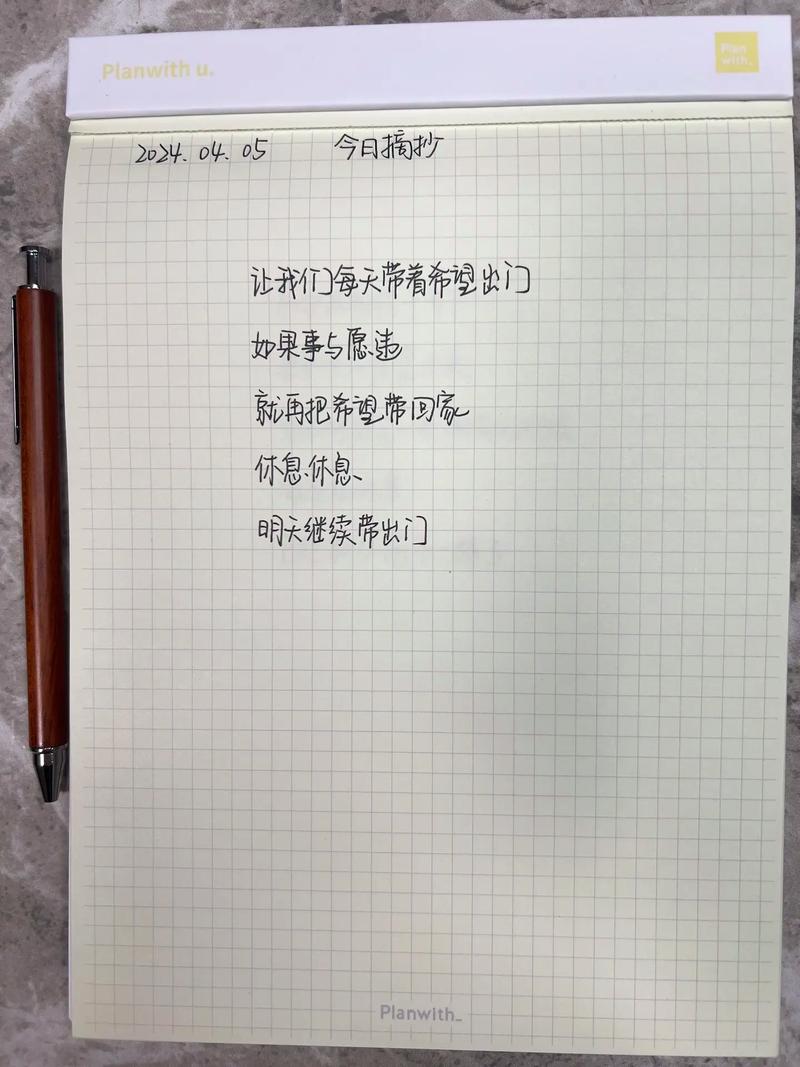 Planwith u.
Plan
with_
2024.04.05 今日摘抄
让我们每天带着希望出门
如果事与愿违
就再把希望带回家
休息、休息、
明天继续带出门
Planwith_